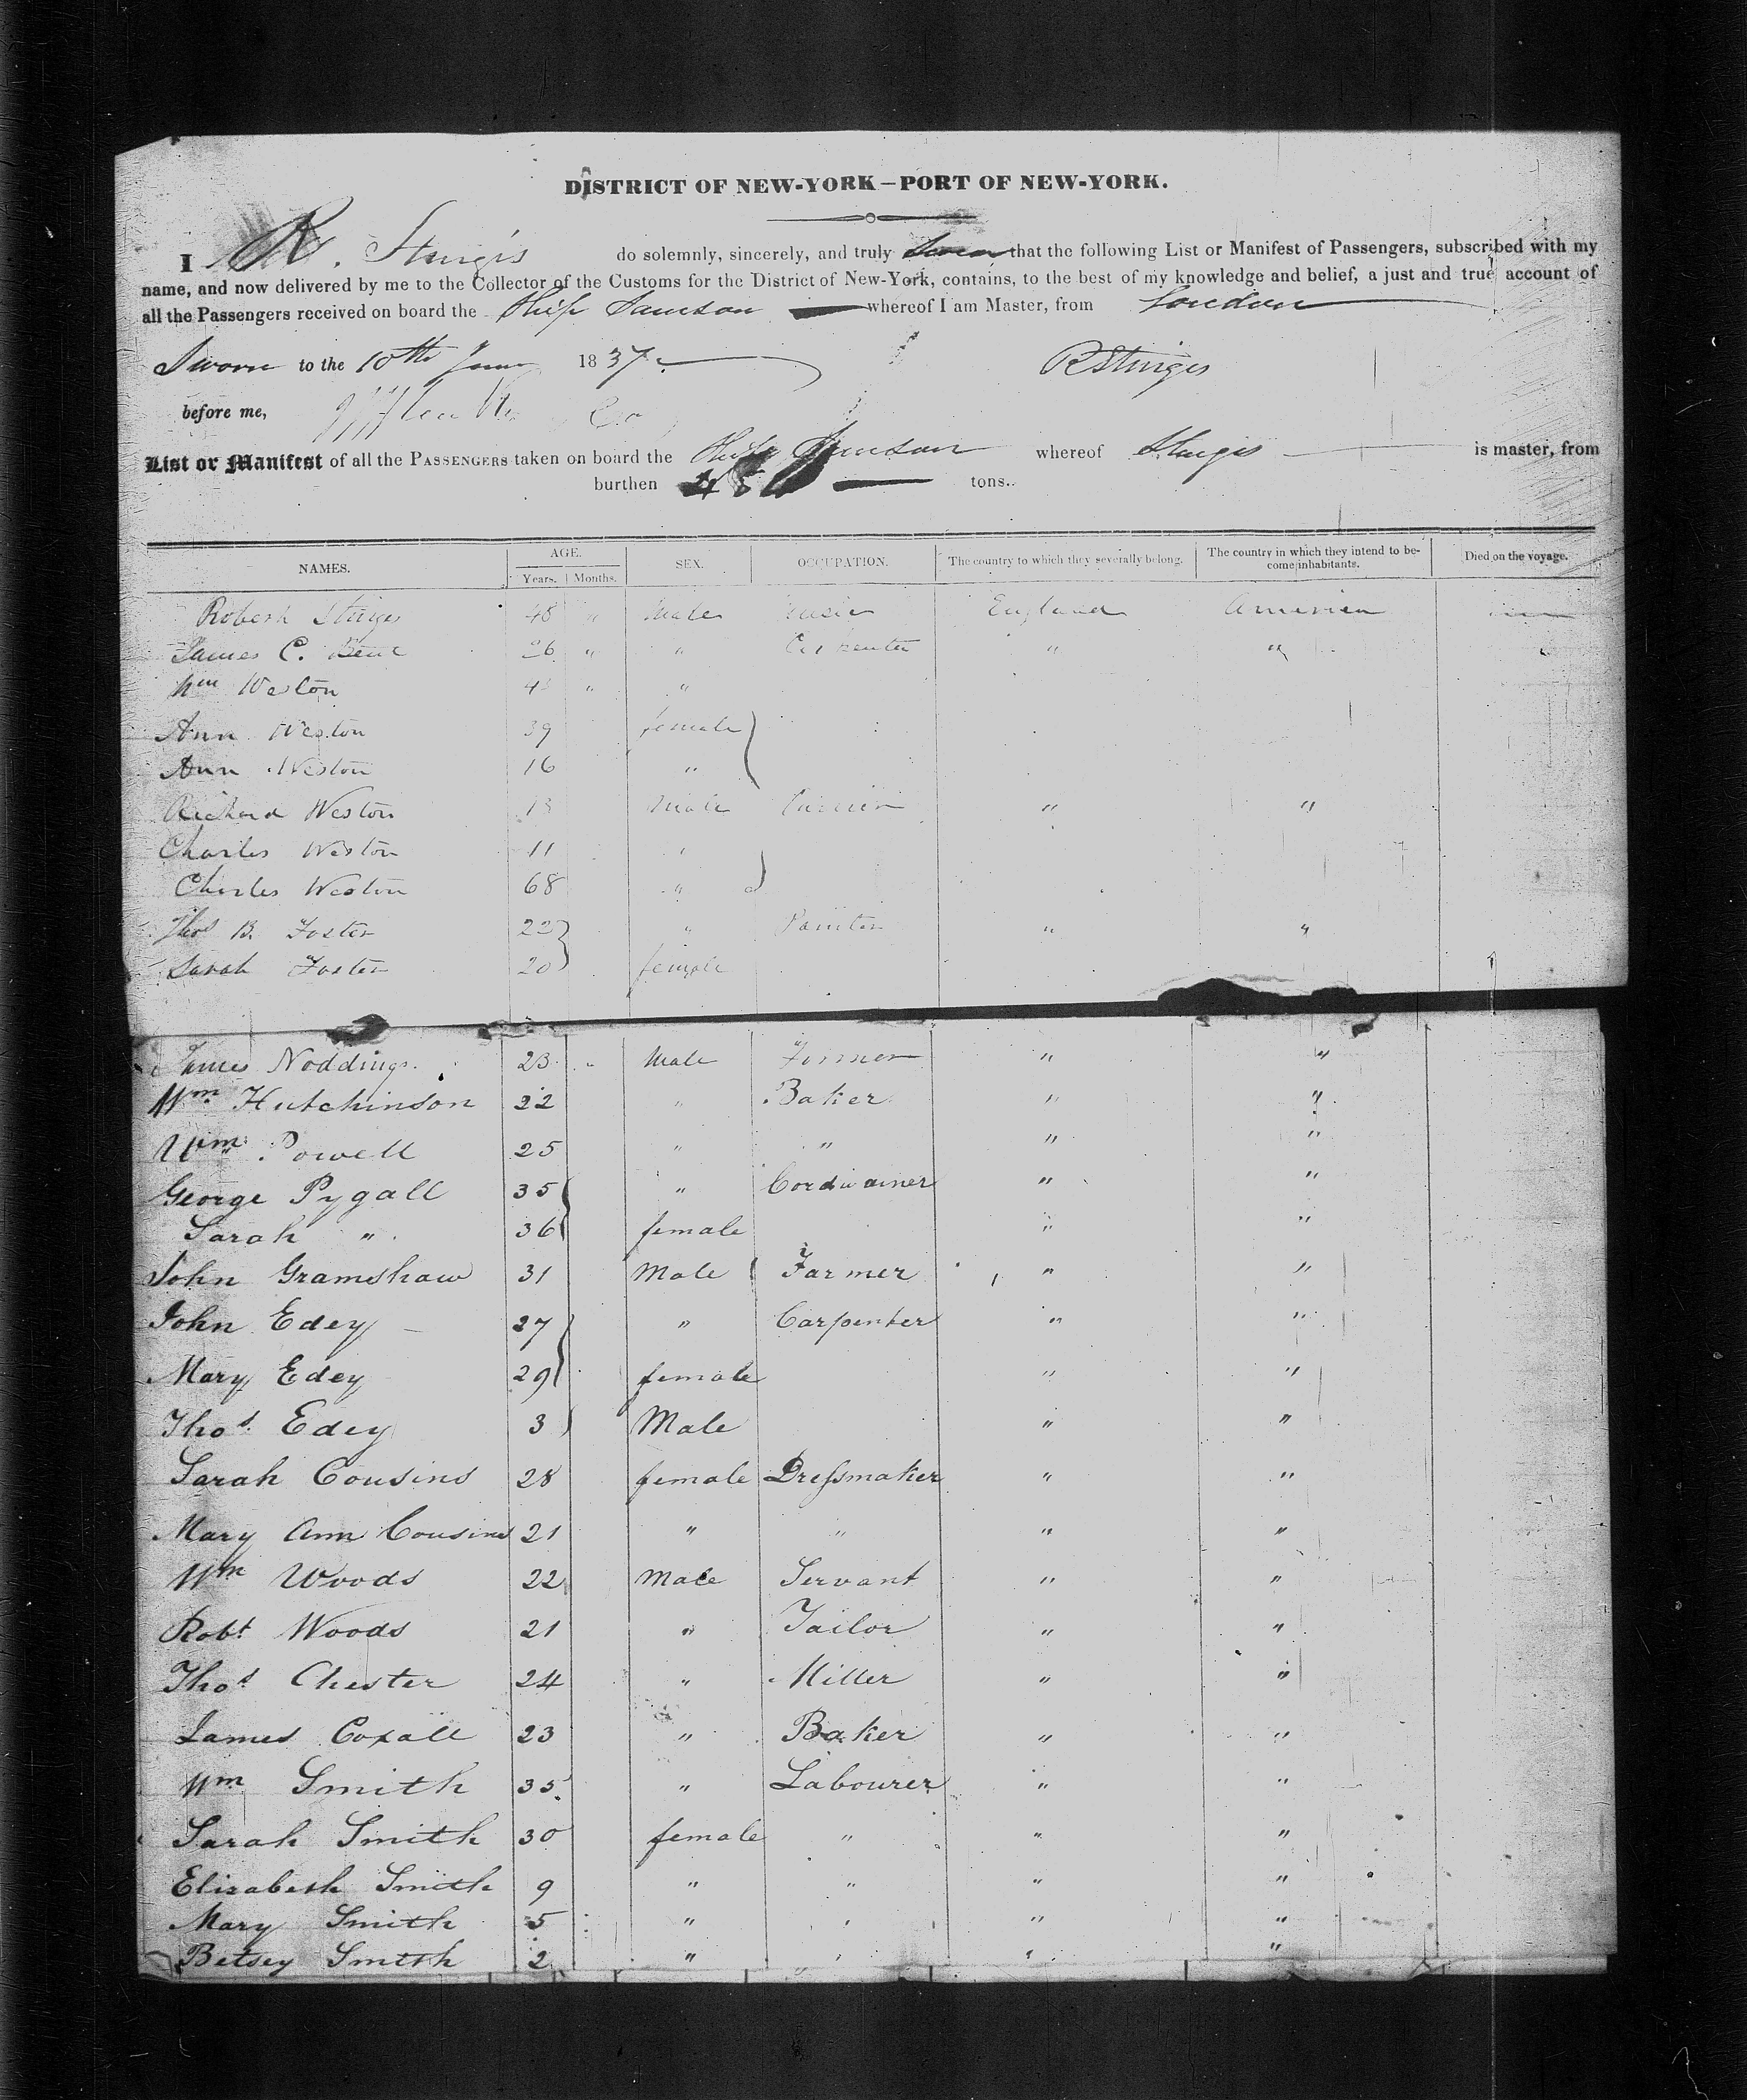 DISTRICT OF NEW-YORK—PORT OF NEW-YORK.
I R. Sturgis do solemnly, sincerely, and truly Swear that the following List or Manifest of Passengers, subscribed with my
name, and now delivered by me to the Collector of the Customs for the District of New-York, contains, to the best of my knowledge and belief, a just and true account of
all the Passengers received on board the Ship Samson whereof I am Master, from London
Sworn to the 10th June 1837 R Sturges
before me,
List or Manifest of all the PASSENGERS taken on board the Ship Samson whereof Sturgis is master, from
burthen tons..
NAMES. AGE. Years. Months. SEX. OCCUPATION. The country to which they severally belong. The country in which they intend to become inhabitants. Died on the voyage.
Robert Sturges 48 " Male England America
James C. 26 " " Carpenter " "
Wm Weston " "
Ann Weston 39 female
Ann Weston 16 "
Richard Weston Male " "
Charles Weston 11 "
Charles Weston 68 "
Thos B. Foster 22 " Painter " "
Sarah Foster 20 female
James Noddings 23 " Male Farmer " "
Wm Hutchinson 22 " Baker " "
Wm Powell 25 " " " "
George Pygall 35 " Cordwainer " "
Sarah " 36 female " "
John Gramshaw 31 Male Farmer " "
John Edey 27 " Carpenter " "
Mary Edey 29 female " "
Thos Edey 3 Male " "
Sarah Cousins 28 female Dressmaker " "
Mary Ann Cousins 21 " " " "
Wm Woods 22 Male Servant " "
Robt Woods 21 " Tailor " "
Thos Chester 24 " Miller " "
James Coxall 23 " Baker " "
Wm Smith 35 " Labourer " "
Sarah Smith 30 female " " "
Elizabeth Smith 9 " " " "
Mary Smith 5 " " " "
Betsey Smith 2 " " " "